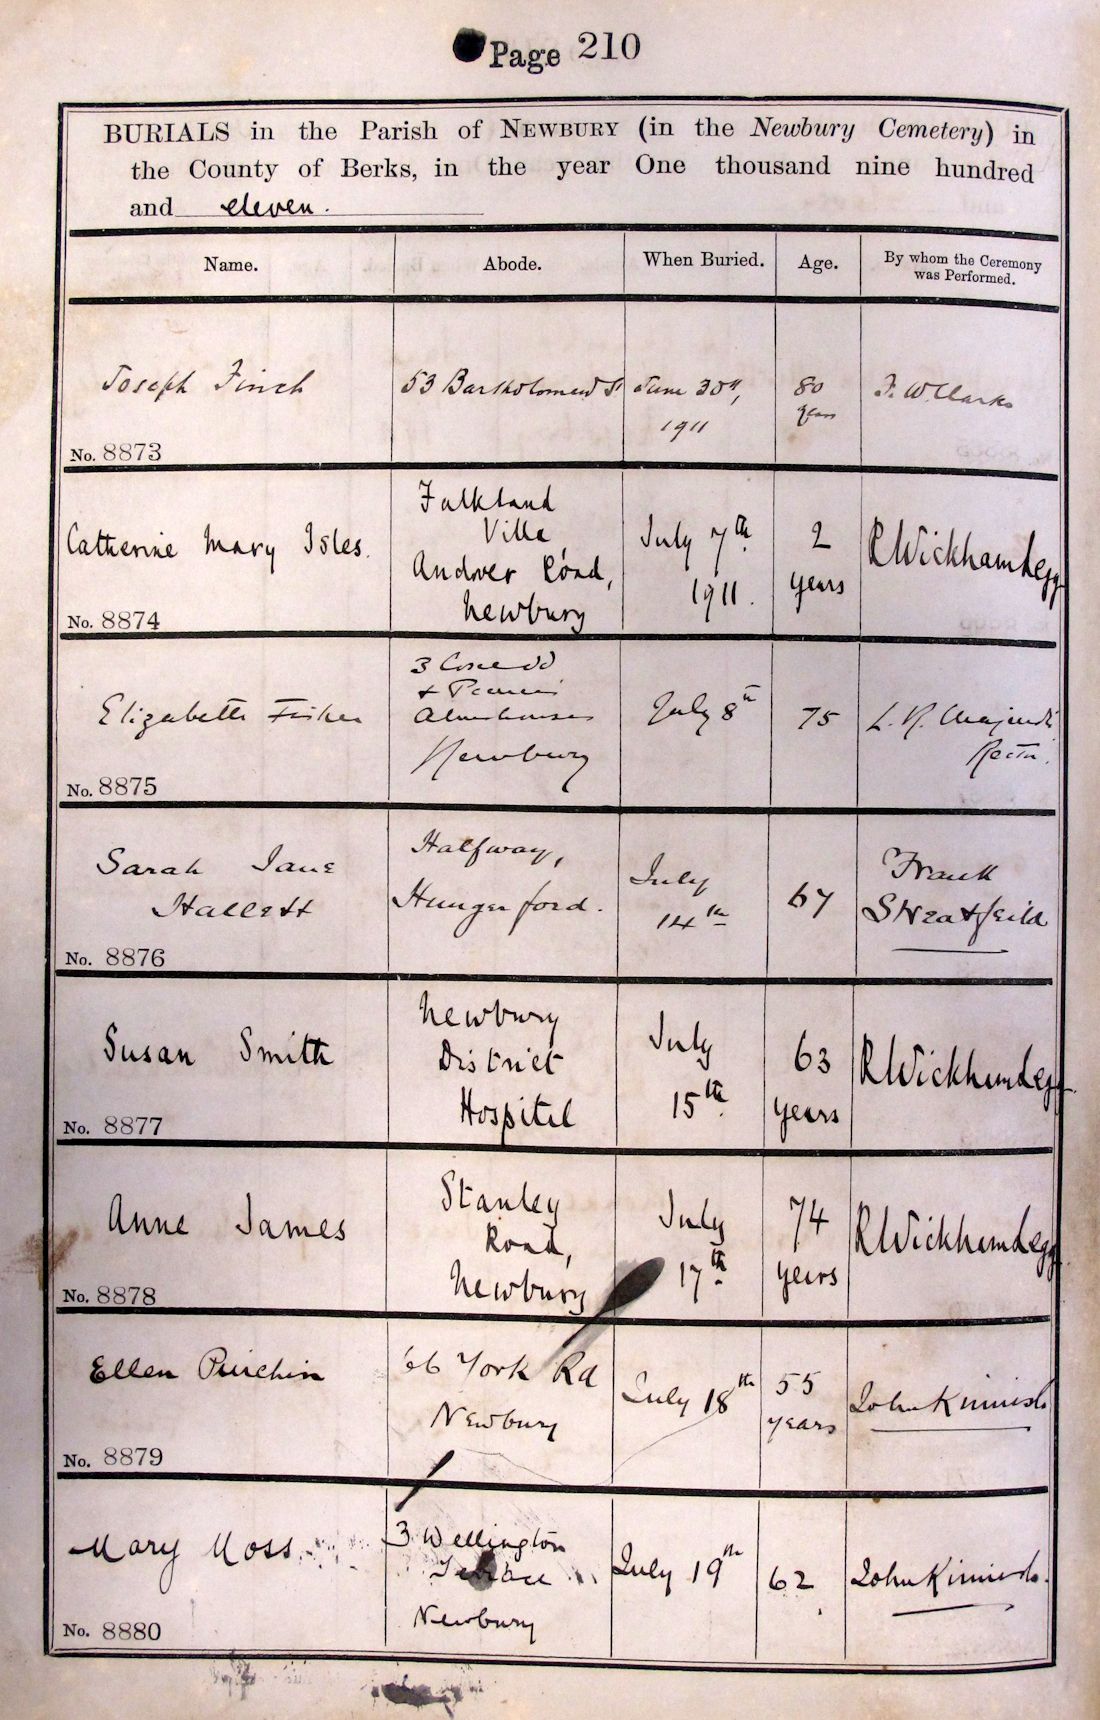 Page 210
BURIALS in the Parish of NEWBURY (in the Newbury Cemetery) in
the County of Berks, in the year One thousand nine hundred
and eleven.
Name.
Abode.
When Buried.
Age.
By whom the Ceremony
was Performed.
Joseph Finch
No. 8873
53 Bartholomew St
June 30th,
1911
80
years
F. W. Clarke
Catherine Mary Isles.
No. 8874
Falkland
Villa
Andover Road,
Newbury
July 7th
1911.
2
years
R Wickham Legg
Elizabeth Fisher
No. 8875
3
+
Almshouses
Newbury
July 8th
75
L. R. Majendie
Rector.
Sarah Jane
Hallett
No. 8876
Halfway,
Hungerford.
July
14th
67
Frank
Streatfeild
Susan Smith
No. 8877
Newbury
District
Hospital
July
15th
63
years
R Wickham Legg
Anne James
No. 8878
Stanley
Road,
Newbury
July
17th
74
years
R Wickham Legg
Ellen Purchin
No. 8879
66 York Rd
Newbury
July 18th
55
years
John Kinnish
Mary Moss
No. 8880
3 Wellington
Terrace
Newbury
July 19th
62
John Kinnish.